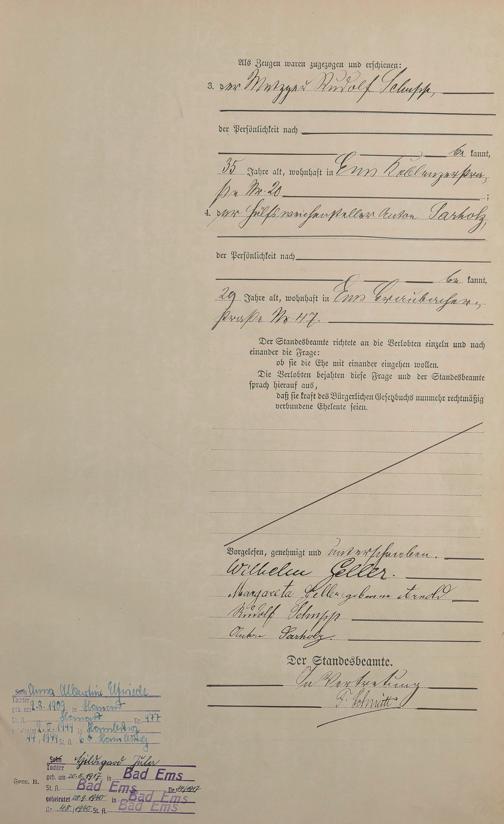 Als Zeugen waren zugezogen und erschienen:
3. der Metzger Rudolf Schupp,
der Persönlichkeit nach
be kannt,
35 Jahre alt, wohnhaft in Ems Koblenzerstra-
ße Nr 20 ;
4. der Hülfsweichensteller Anton Sarholz,
der Persönlichkeit nach
be kannt,
29 Jahre alt, wohnhaft in Ems Braubacher-
straße Nr 47.
Der Standesbeamte richtete an die Verlobten einzeln und nach
einander die Frage:
ob sie die Ehe mit einander eingehen wollen.
Die Verlobten bejahten diese Frage und der Standesbeamte
sprach hierauf aus,
daß sie kraft des Bürgerlichen Gesetzbuchs nunmehr rechtmäßig
verbundene Eheleute seien.
Vorgelesen, genehmigt und unterschrieben.
Wilhelm Geller.
Margareta Geller geborene Arnold
Rudolf Schupp
Anton Sarholz.
Der Standesbeamte.
In Vertretung
Schmitt
Anna Albertine Elfriede
Tochter
1909 in
Nr 477
1944
Sohn Hildegard
Tochter
geb. am 1917 in Bad Ems
St. A. Bad Ems Nr /1917
geheiratet 1940 in Bad Ems
Nr 48/1940 St. A. Bad Ems